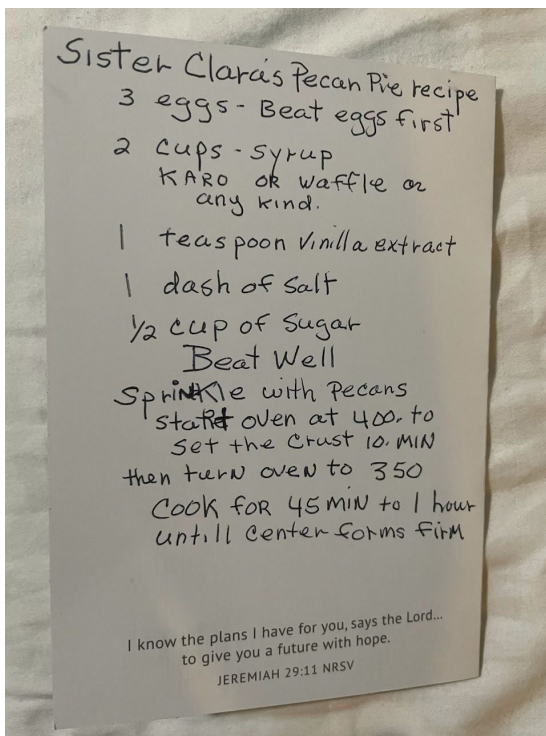 Sister Clara's Pecan Pie recipe
3 eggs - Beat eggs first
2 cups - syrup
KARO OR Waffle or
any kind.
1 teaspoon Vinilla extract
1 dash of salt
1/2 cup of Sugar
Beat Well
Sprinkle with Pecans
start oven at 400. to
Set the Crust 10. MIN
then turn oven to 350
Cook for 45 MIN to 1 hour
untill Center forms firm
I know the plans I have for you, says the Lord...
to give you a future with hope.
JEREMIAH 29:11 NRSV